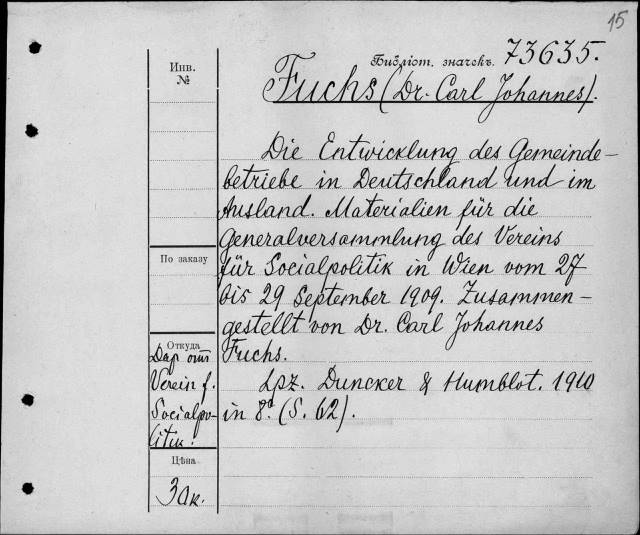 15
Библіот. значекъ. 73635.
Инв.
№
Fuchs (Dr. Carl Johannes).
Die Entwicklung des Gemeinde-
betriebe in Deutschland und im
Ausland. Materialien für die
Generalversammlung des Vereins
für Socialpolitik in Wien vom 27
bis 29 September 1909. Zusammen-
gestellt von Dr. Carl Johannes
Fuchs.
Lpz. Duncker & Humblot. 1910
in 8º (S. 62).
По заказу
Откуда
Дар от
Verein f.
Socialpo-
litik.
Цѣна